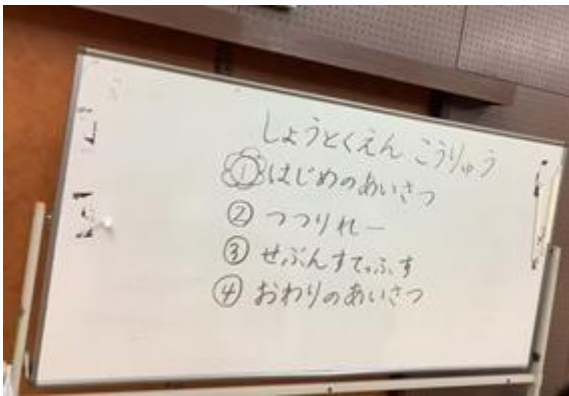 しょうとくえん こうりゅう
①はじめのあいさつ
②つつりれー
③せぶんすてっぷす
④おわりのあいさつ